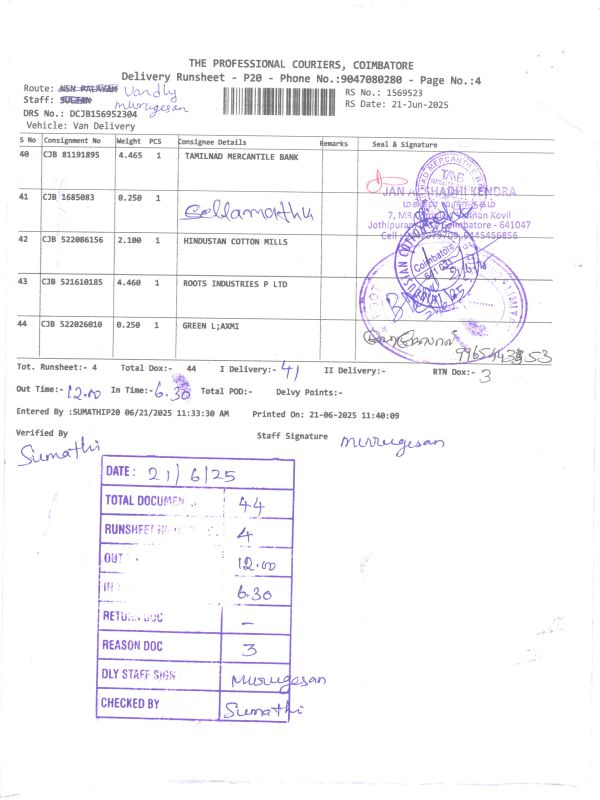 THE PROFESSIONAL COURIERS, COIMBATORE
Delivery Runsheet - P20 - Phone No.:9047080280 - Page No.:4
Route: Vandly
Staff: Murugesan
DRS No.: DCJB156952304
Vehicle: Van Delivery
RS No.: 1569523
RS Date: 21-Jun-2025
S No Consignment No Weight PCS Consignee Details Remarks Seal & Signature
40 CJB 81191895 4.465 1 TAMILNAD MERCANTILE BANK
JAN AUSHADHI KENDRA
41 CJB 1685083 0.250 1
மக்கள் மருந்தகம்
Coimbatore - 641047
9445456856
42 CJB 522086156 2.100 1 HINDUSTAN COTTON MILLS
Coimbatore
43 CJB 521610185 4.460 1 ROOTS INDUSTRIES P LTD
21/6/25
44 CJB 522026010 0.250 1 GREEN L;AXMI
Tot. Runsheet:- 4 Total Dox:- 44 I Delivery:- 41 II Delivery:- RTN Dox:- 3
Out Time:- 12.00 In Time:- 6.30 Total POD:- Delvy Points:-
Entered By :SUMATHIP20 06/21/2025 11:33:30 AM Printed On: 21-06-2025 11:40:09
Verified By Sumathi Staff Signature Murugesan
DATE: 21/6/25
TOTAL DOCUMEN 44
RUNSHEET 4
OUT 12.00
IN 6.30
RETURN DOC -
REASON DOC 3
DLY STAFF SIGN Murugesan
CHECKED BY Sumathi